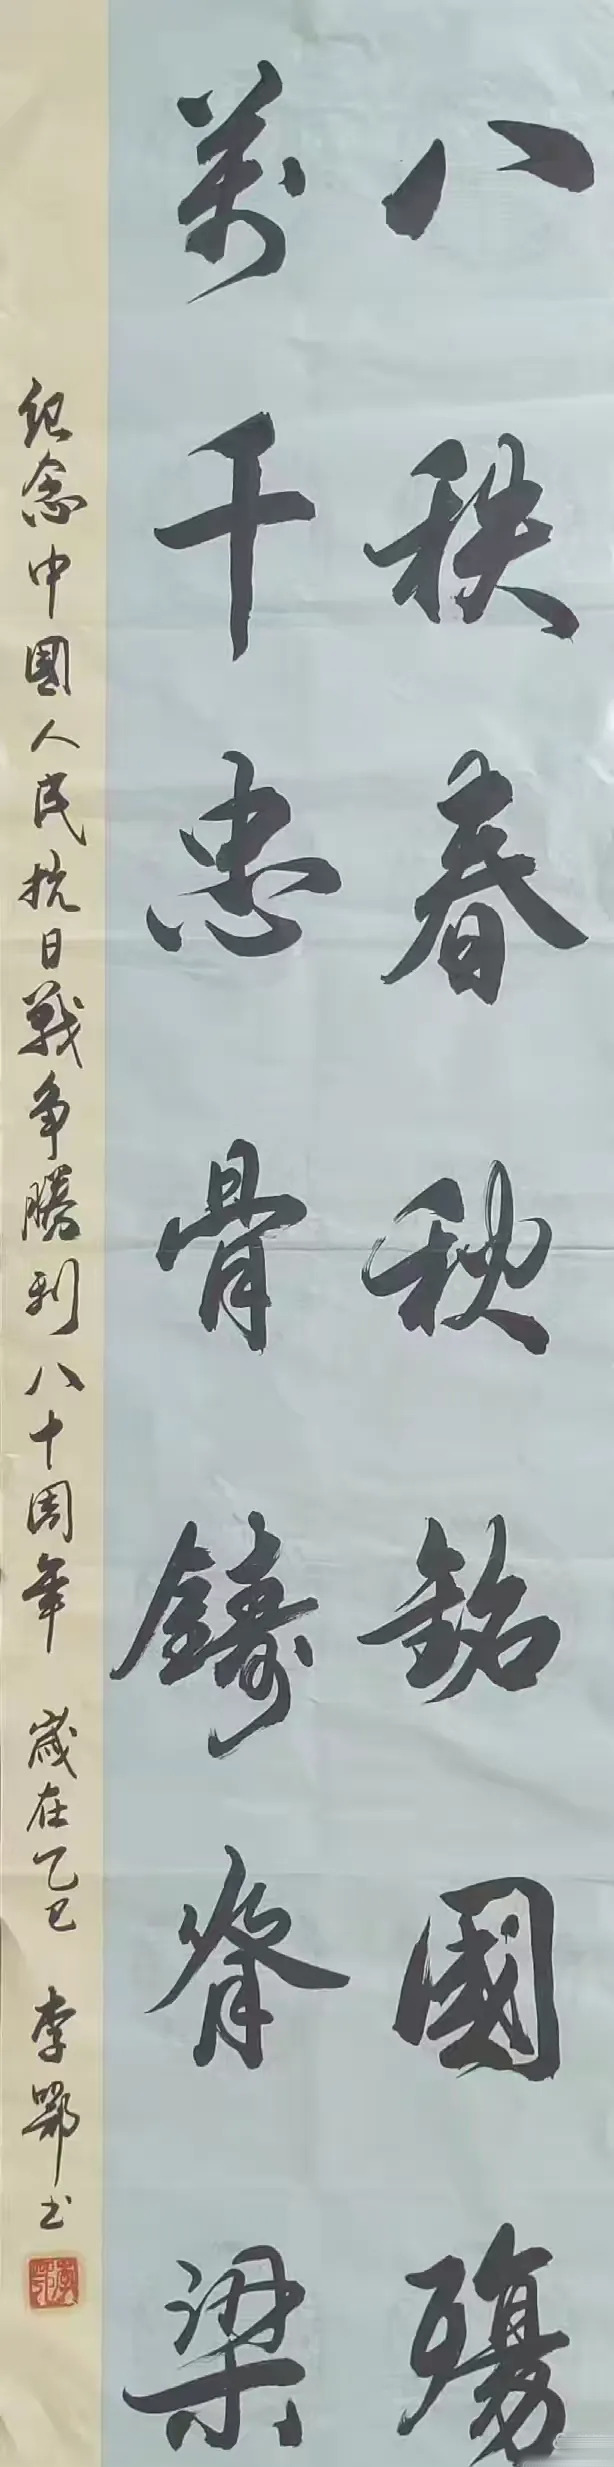 八秩春秋銘國殤
萬千忠骨鑄脊梁
紀念中國人民抗日戰争勝利八十周年 歲在乙巳 李鄂书
李鄂